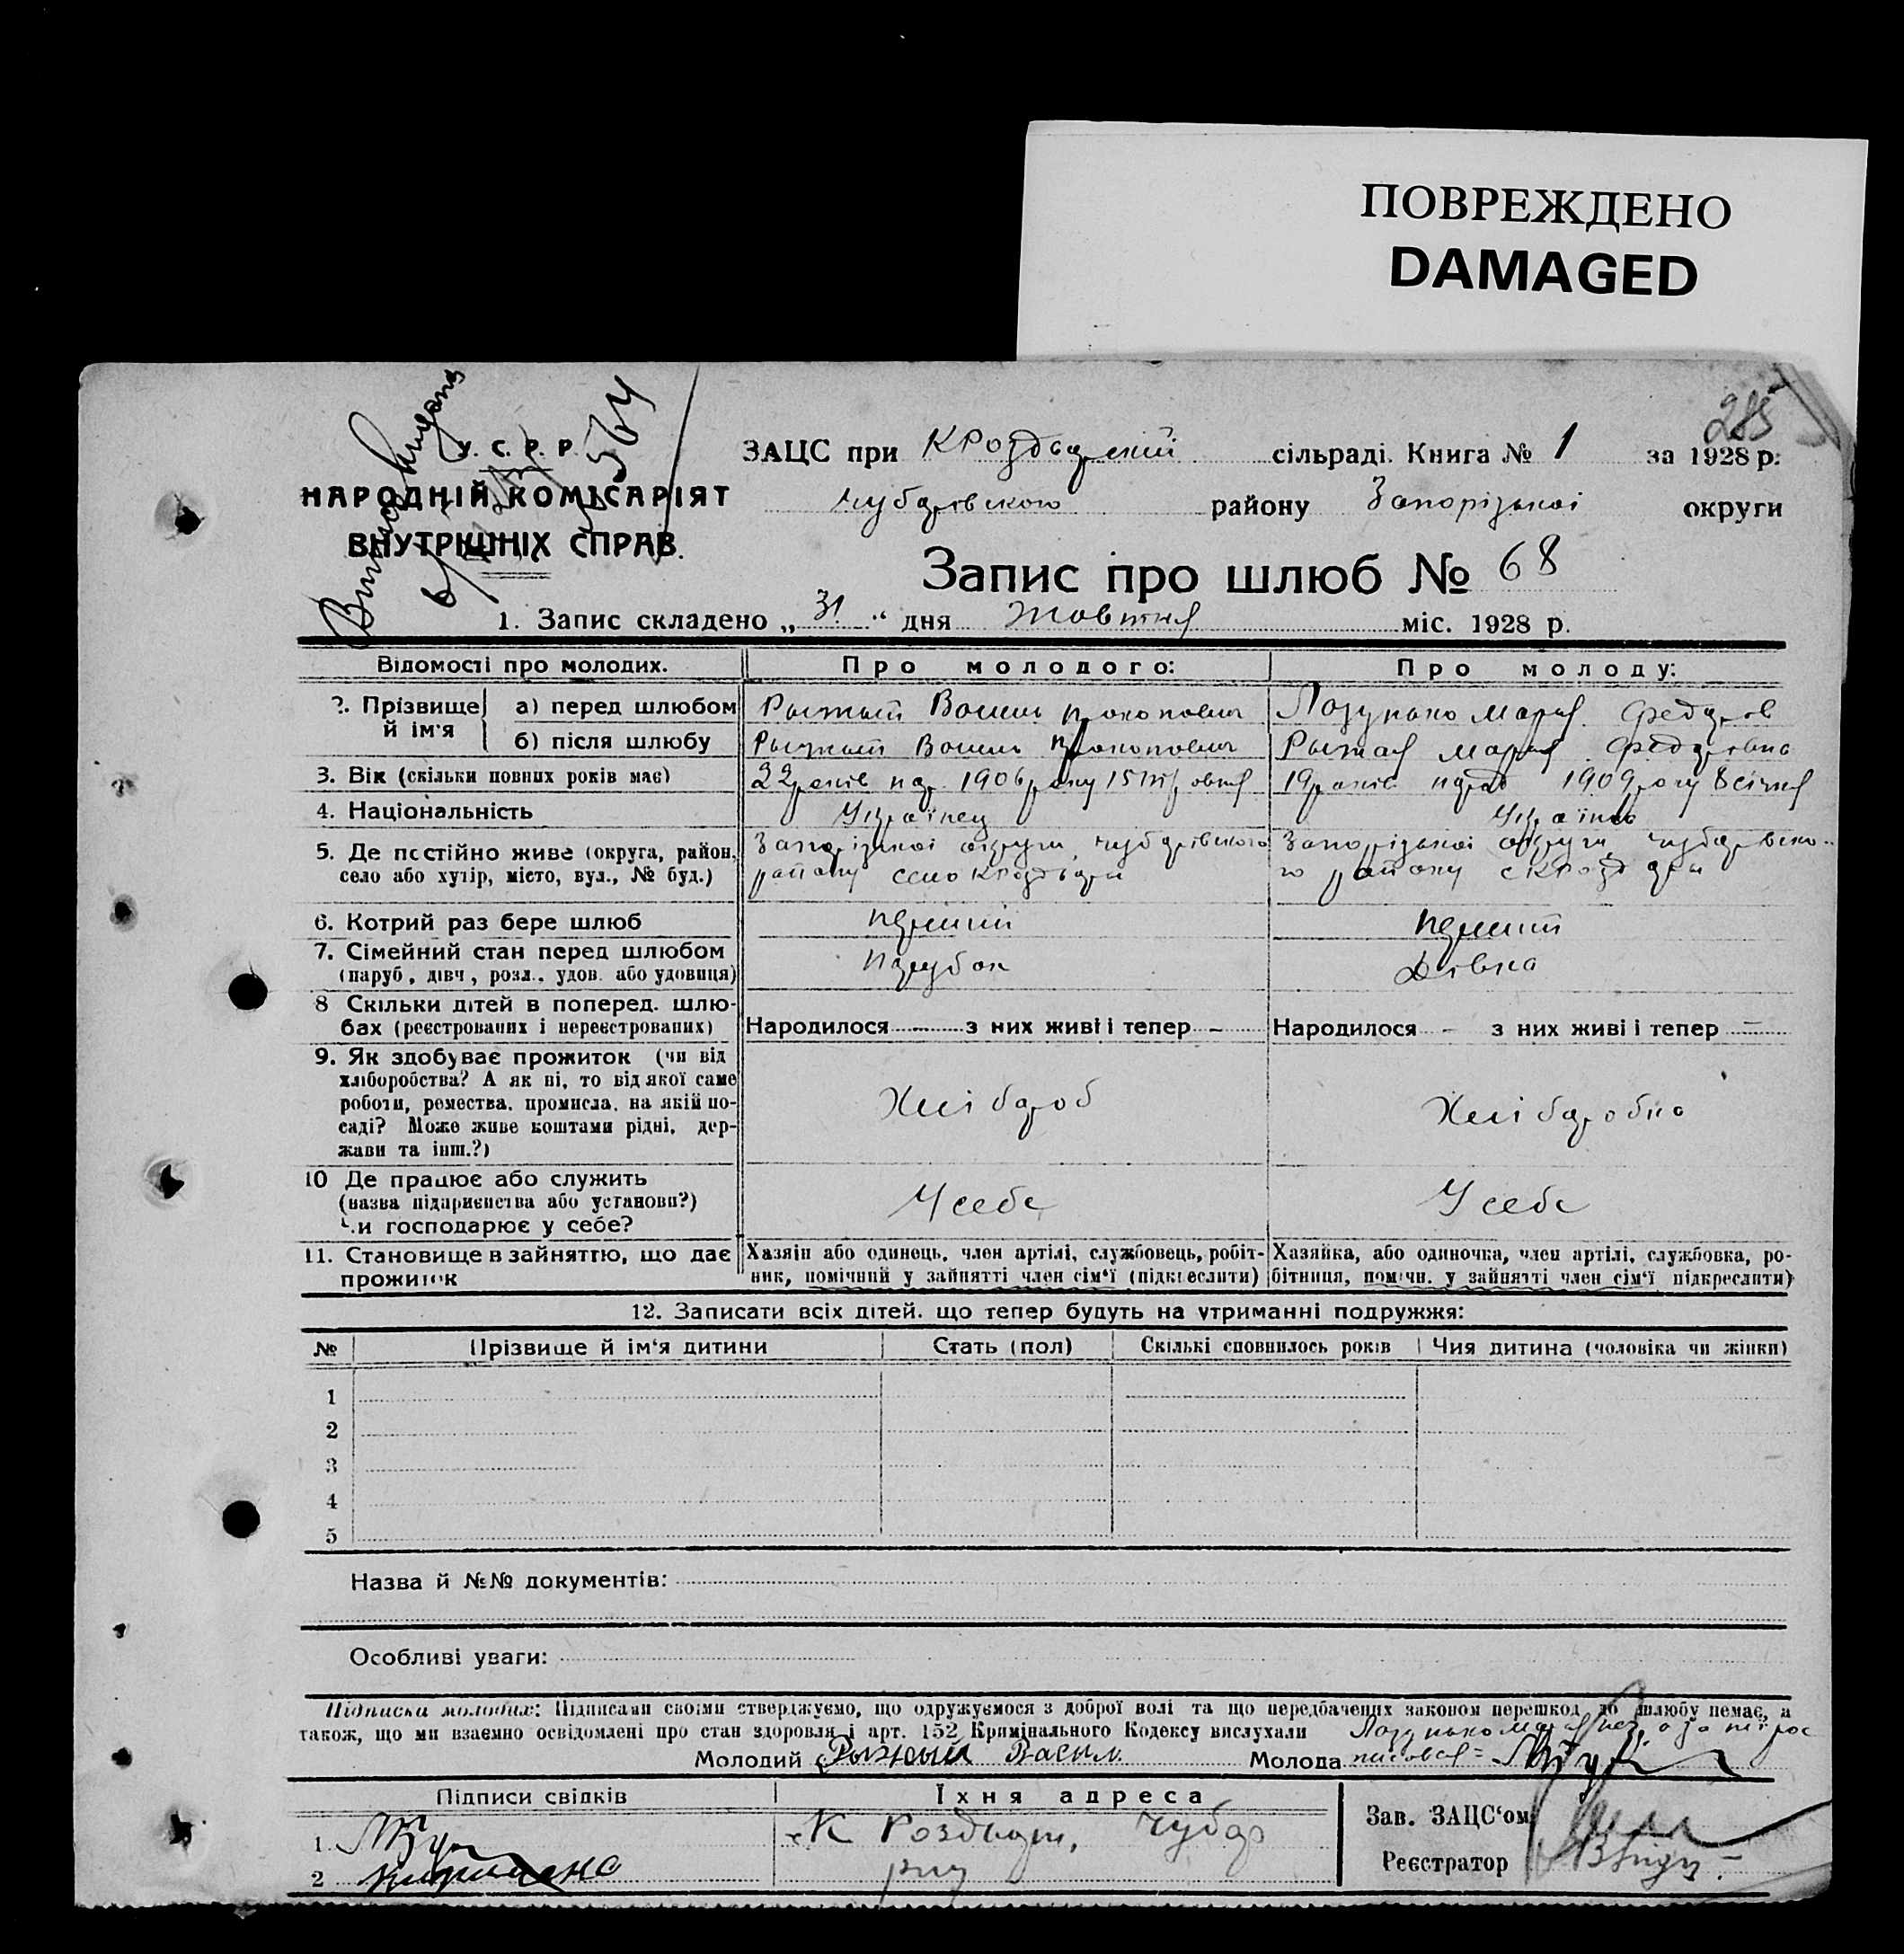 ПОВРЕЖДЕНО
DAMAGED
285
У. С. Р. Р.
НАРОДНІЙ КОМІСАРІЯТ
ВНУТРІШНІХ СПРАВ.
564
ЗАЦС при КРоздорській сільраді. Книга № 1 за 1928 р.
Чубарівського району Запорізької округи
Запис про шлюб № 68
1. Запис складено „31“ дня Жовтня міс. 1928 р.
Відомості про молодих. Про молодого: Про молоду:
2. Прізвище й ім'я а) перед шлюбом Рыжый Василь Прокопович Лозунько Мария Федоров
б) після шлюбу Рыжый Василь Прокопович Рыжая Мария Федорівна
3. Вік (скільки повних років має) 22 років нар. 1906 року 15 19 років народ 1909 року 8 січня
4. Національність Українец Українка
5. Де постійно живе (округа, район, Запорізької округи, Чубарівського Запорізької округи, Чубарівсько-
село або хутір, місто, вул., № буд.) району село КРоздори го району с КРоздори
6. Котрий раз бере шлюб перший перший
7. Сімейний стан перед шлюбом парубок Дівка
(паруб., дівч., розл., удов. або удовиця)
8 Скільки дітей в поперед. шлю-
бах (реєстрованих і нереєстрованих) Народилося - з них живі і тепер - Народилося - з них живі і тепер -
9. Як здобуває прожиток (чи від
хліборобства? А як ні, то від якої саме
роботи, ремества, промисла, на якій по- Хлібороб Хлібаробка
саді? Може живе коштами рідні, дер-
жави та інш.?)
10 Де працює або служить
(назва підприємства або установи?) У себе У себе
Чи господарює у себе?
11. Становище в зайняттю, що дає Хазяїн або одинець, член артілі, службовець, робіт- Хазяйка, або одиночка, член артілі, службовка, ро-
прожиток ник, помічний у зайнятті член сім'ї (підкреслити) бітниця, помічн. у зайнятті член сім'ї підкреслити)
12. Записати всіх дітей, що тепер будуть на утриманні подружжя:
№ Прізвище й ім'я дитини Стать (пол) Скількі сповнилось років Чия дитина (чоловіка чи жінки)
1
2
3
4
5
Назва й №№ документів:
Особливі уваги:
Підписка молодих: Підписами своїми стверджуємо, що одружуємося з доброї волі та що передбачених законом перешкод до шлюбу немає, а
також, що ми взаємно освідомлені про стан здоровля і арт. 152 Кримінального Кодексу вислухали Лозунько Мария
Молодий Рыжый Василь Молода
Підписи свідків Їхня адреса
1. К Роздори, Чубар Зав. ЗАЦС'ом
2 р-ну Реєстратор